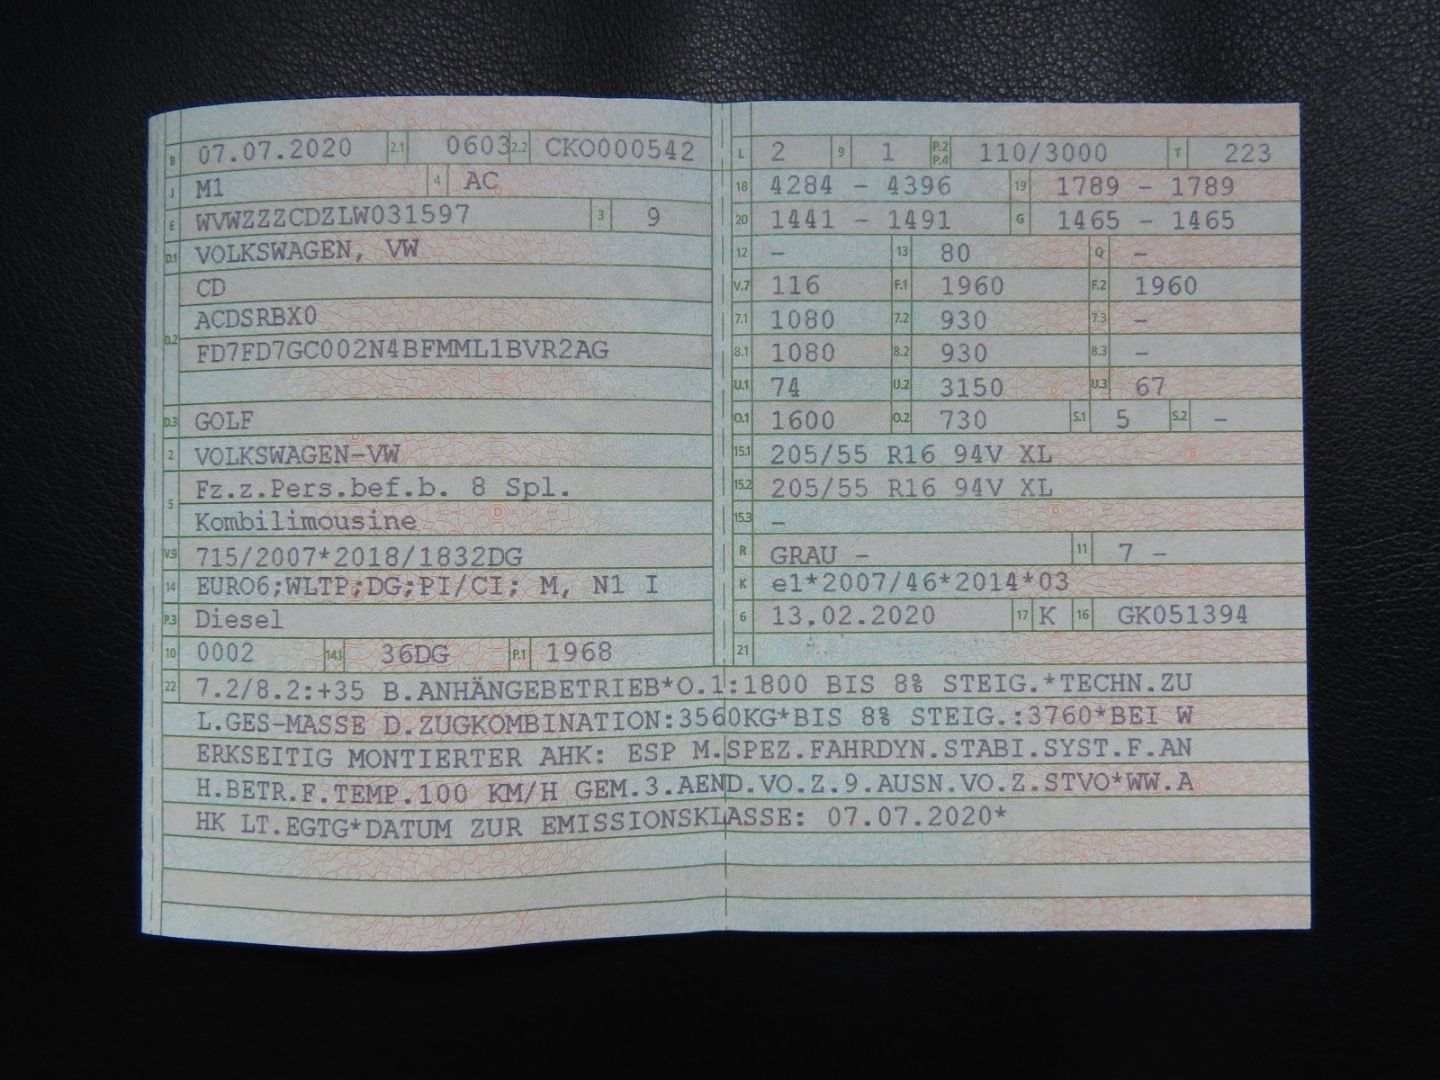 B 07.07.2020 2.1 0603 2.2 CKO000542
J M1 4 AC
E WVWZZZCDZLW031597 3 9
D.1 VOLKSWAGEN, VW
CD
D.2 ACDSRBX0
FD7FD7GC002N4BFMML1BVR2AG
D.3 GOLF
2 VOLKSWAGEN-VW
5 Fz.z.Pers.bef.b. 8 Spl.
Kombilimousine
V.9 715/2007*2018/1832DG
14 EURO6;WLTP;DG;PI/CI; M, N1 I
P.3 Diesel
10 0002 14.1 36DG P.1 1968
L 2 9 1 P.2 P.4 110/3000 T 223
18 4284 - 4396 19 1789 - 1789
20 1441 - 1491 G 1465 - 1465
12 - 13 80 Q -
V.7 116 F.1 1960 F.2 1960
7.1 1080 7.2 930 7.3 -
8.1 1080 8.2 930 8.3 -
U.1 74 U.2 3150 U.3 67
O.1 1600 O.2 730 S.1 5 S.2 -
15.1 205/55 R16 94V XL
15.2 205/55 R16 94V XL
15.3 -
R GRAU - 11 7 -
K e1*2007/46*2014*03
6 13.02.2020 17 K 16 GK051394
21
22 7.2/8.2:+35 B.ANHÄNGEBETRIEB*O.1:1800 BIS 8% STEIG.*TECHN.ZU
L.GES-MASSE D.ZUGKOMBINATION:3560KG*BIS 8% STEIG.:3760*BEI W
ERKSEITIG MONTIERTER AHK: ESP M.SPEZ.FAHRDYN.STABI.SYST.F.AN
H.BETR.F.TEMP.100 KM/H GEM.3.AEND.VO.Z.9.AUSN.VO.Z.STVO*WW.A
HK LT.EGTG*DATUM ZUR EMISSIONSKLASSE: 07.07.2020*